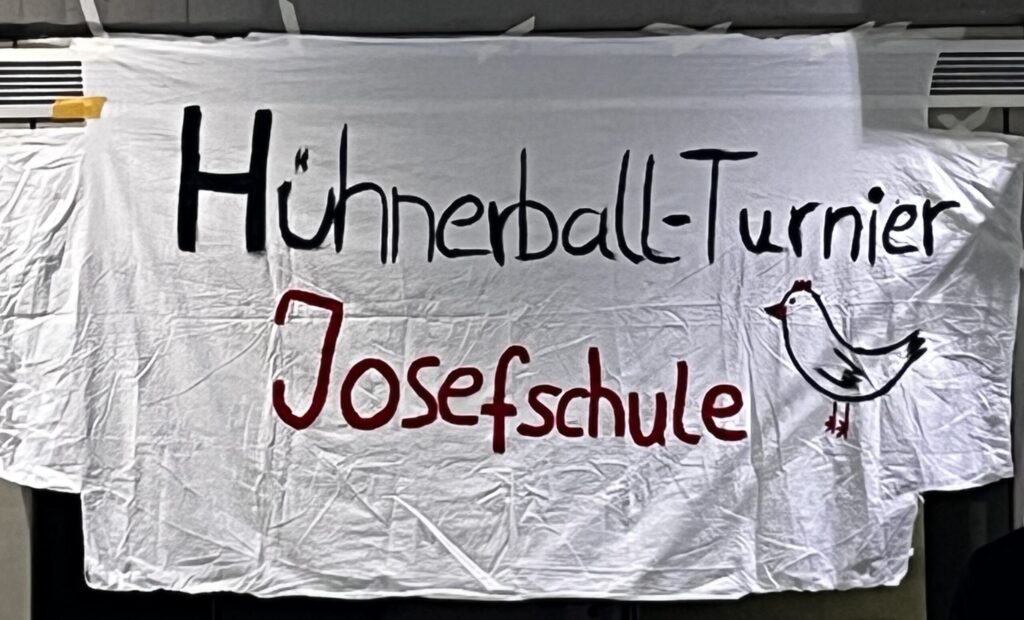 Hühnerball-Turnier
Josefschule